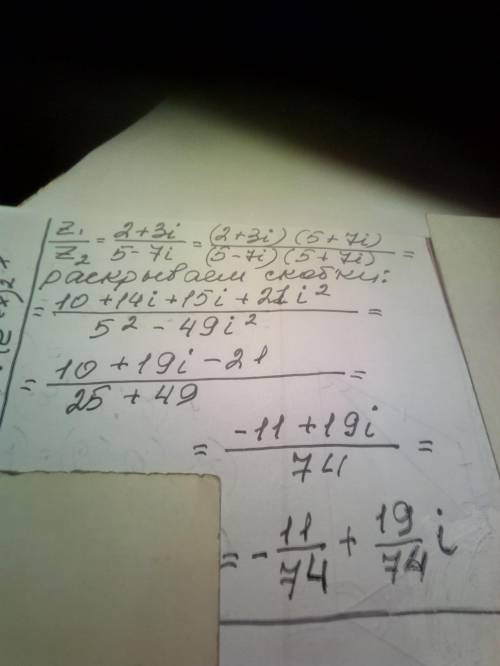 z₁/z₂ = (2+3i)/(5-7i) = ((2+3i)(5+7i))/((5-7i)(5+7i)) =
раскрываем скобки:
= (10+14i+15i+21i²)/(5²-49i²) =
= (10+19i-21)/(25+49) =
= (-11+19i)/74 =
= -11/74 + 19/74 i